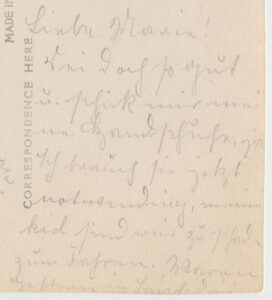 MADE IN
CORRESPONDENCE HERE
Liebe Marie!
Sei doch so gut
u. schick mir mei
ne Handschuhe, 
ich brauch sie jetzt
notwendig, meine
sind mir zu schade
zum Fahren. Waren
gestern in